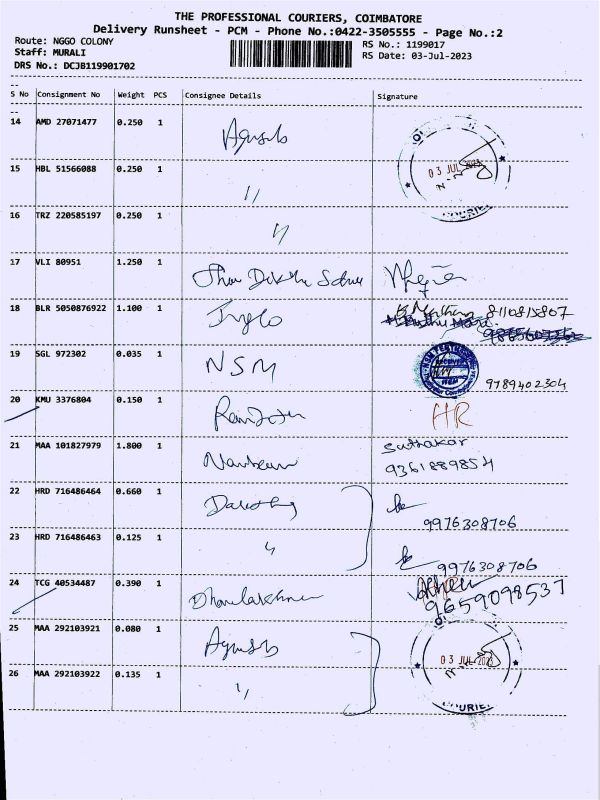 THE PROFESSIONAL COURIERS, COIMBATORE
Delivery Runsheet - PCM - Phone No.:0422-3505555 - Page No.:2
Route: NGGO COLONY
RS No.: 1199017
Staff: MURALI
RS Date: 03-Jul-2023
DRS No.: DCJB119901702
S No Consignment No Weight PCS Consignee Details Signature
14 AMD 27071477 0.250 1
03 JUL 2023
15 HBL 51566088 0.250 1 〃
COURIE
16 TRZ 220585197 0.250 1 〃
17 VLI 80951 1.250 1
18 BLR 5050876922 1.100 1 8110815807
19 SGL 972302 0.035 1 NSM
9789402304
20 KMU 3376804 0.150 1 HR
21 MAA 101827979 1.800 1 Suthakar
9361889854
22 HRD 716486464 0.660 1
9976308706
23 HRD 716486463 0.125 1 〃
9976308706
24 TCG 40534487 0.390 1
9659098537
25 MAA 292103921 0.080 1
03 JUL 2023
26 MAA 292103922 0.135 1 〃
OURIE